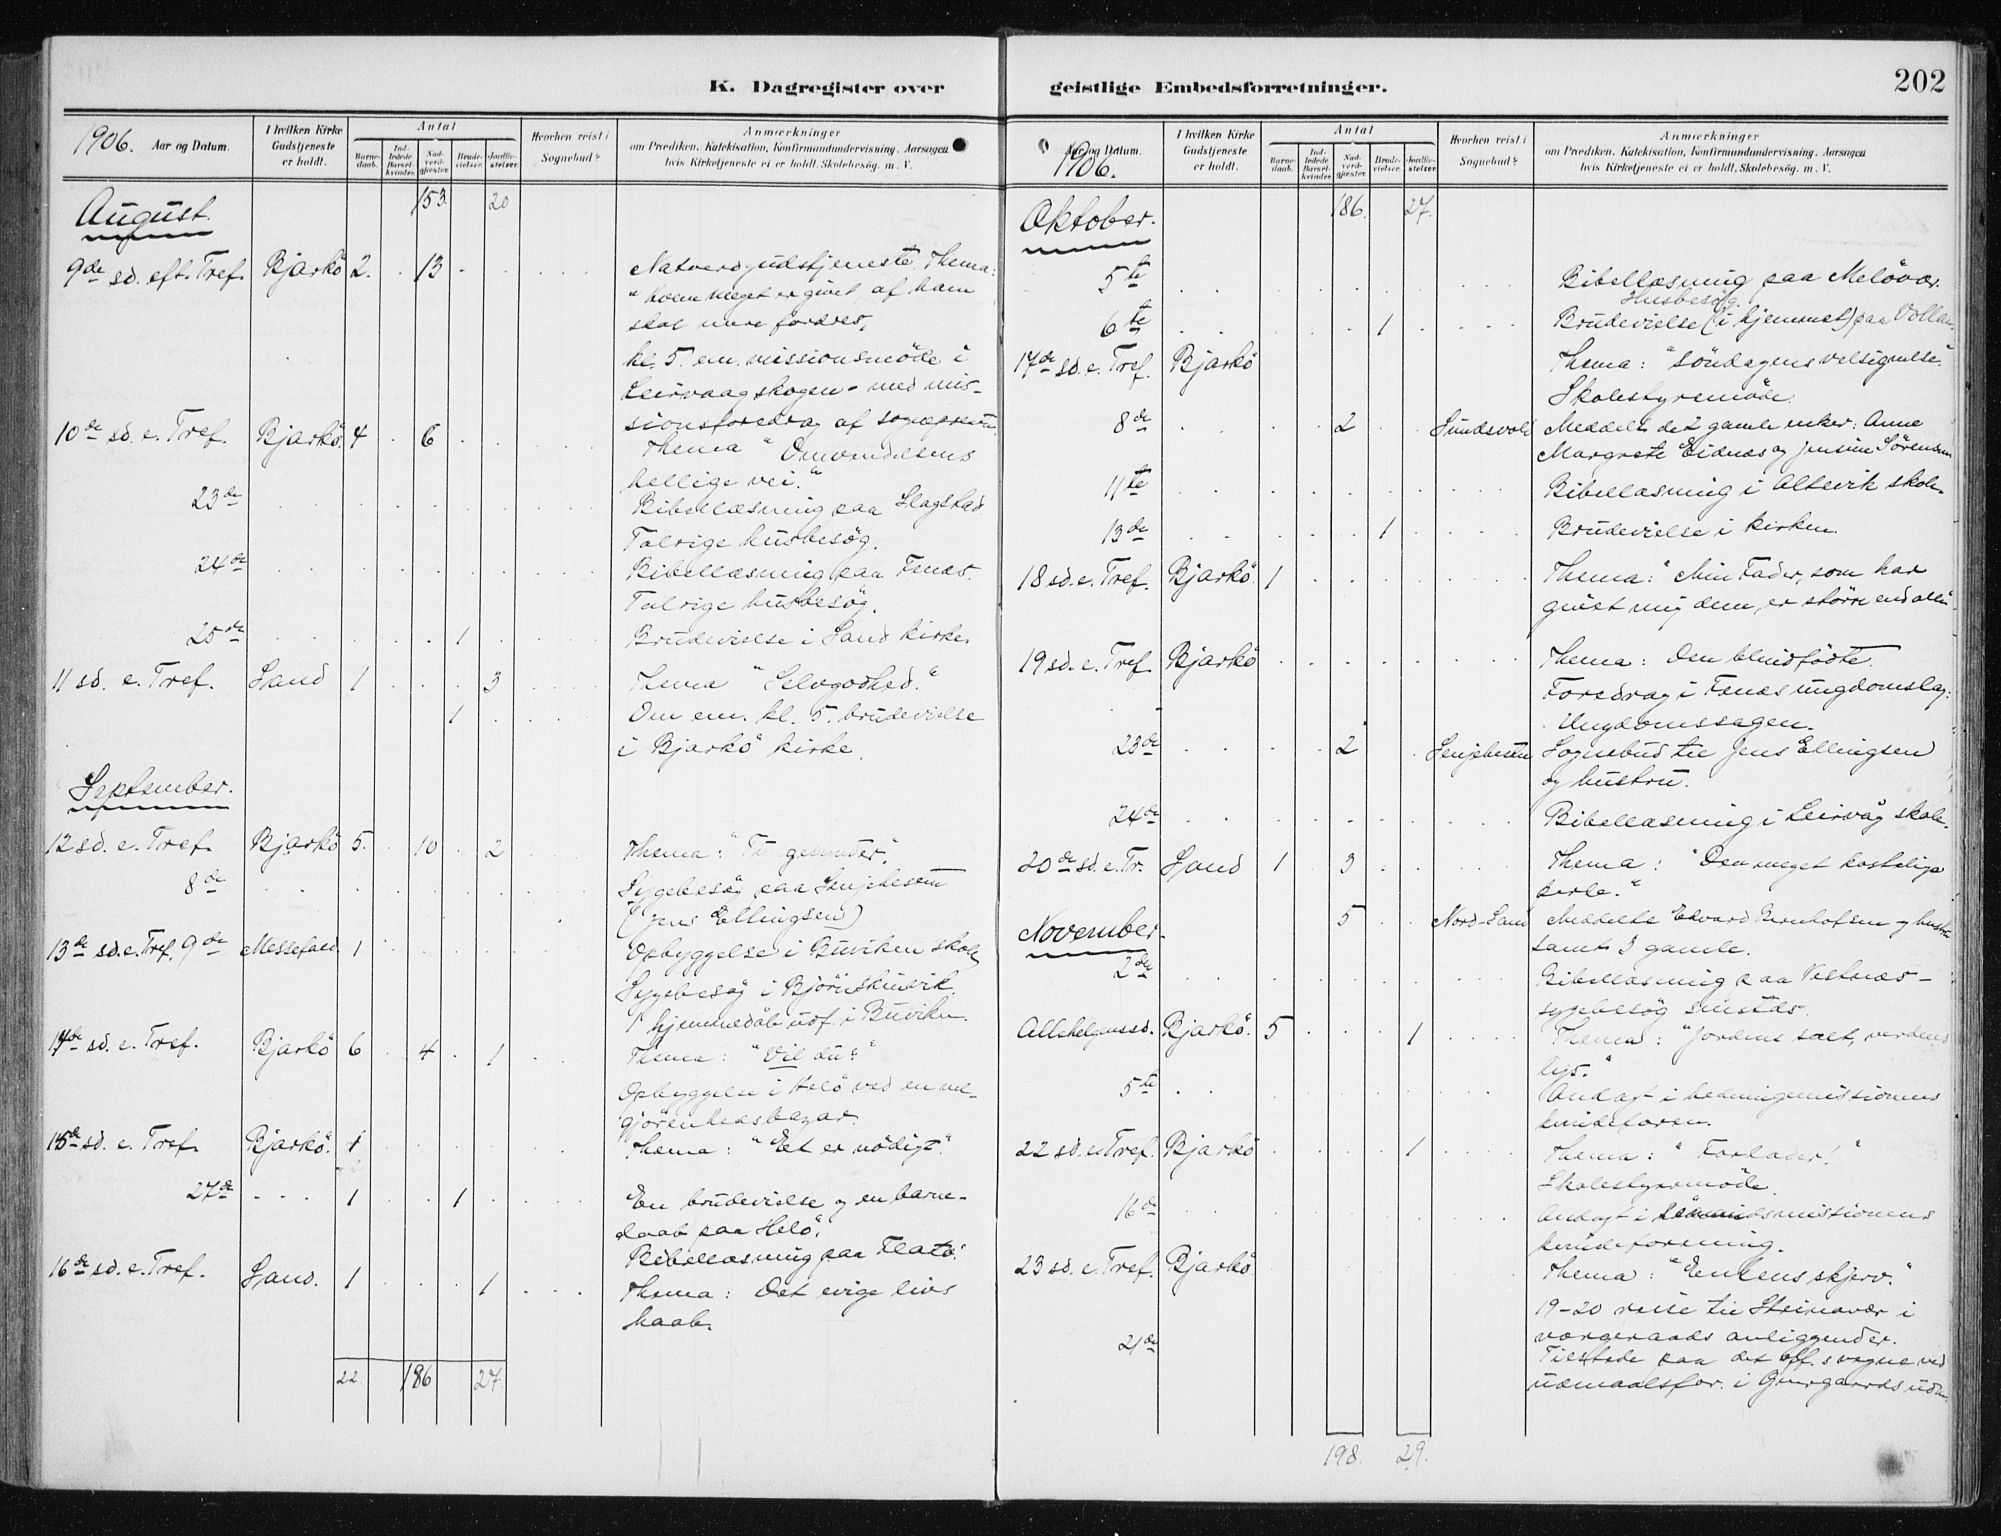 K. Dagregister over
1906. Aar og Datum.
I hvilken Kirke Gudstjeneste er holdt.
Antal
Barnedaab. Indledede Barselkvinder. Nadverdgjæster. Brudevielser. Jordfæstelser.
Hvorhen reist i Sognebud?
Anmærkninger
om Prædiken, Katekisation, Konfirmandundervisning, Aarsagen
hvis Kirketjeneste ei er holdt, Skolebesög, m. V.
August. 153. 20
9de sd. eft. Tref. Bjarkö 2. 13 Natverdgudstjeneste. Thema:
"Hvem meget er givet, af ham
skal mere fordres.
kl. 5. em. missionsmöde i
Leirvaagskogen - med mis-
sionsforedrag af sognepresten.
10de sd. e. Tref. Bjarkö. 4 6 Thema "Omvendelsens
hellige vei."
23de Bibellæsning paa Slagstad
Talrige husbesög.
24de Bibellæsning paa Fenes.
Talrige husbesög.
25de 1 Brudevielse i Sand kirke.
11 sd. e. Tref. Sand 1 3 Thema "Selvgodhed."
1 Om em. kl. 5. brudevielse
i Bjarkö kirke.
September.
12 sd. e. Tref. Bjarkö 5. 10 2 Thema:
8de Sygebesög paa Senjehesten
(Jens Ellingsen)
13de sd. e. Tref. 9de Messefald. 1 Opbyggelse i Buviken skole
Sygebesög i
1 hjemmedåb udf. i Buviken.
14de sd. e. Tref. Bjarkö 6 4 1 Thema: "Vil du?"
Opbyggelse i Helö ved en vel-
gjörenhedsbazar.
15de sd. e. Tref. Bjarkö. 1 Thema: "Et er nödigt."
27de 1 1 En brudevielse og en barne-
daab paa Helö.
Bibellæsning paa Flatö.
16de sd. e. Tref. Sand. 1 1 Thema: Det evige livs
haab.
22 186 27.
geistlige Embedsforretninger.
202
1906. Aar og Datum.
I hvilken Kirke Gudstjeneste er holdt.
Antal
Barnedaab. Indledede Barselkvinder. Nadverdgjæster. Brudevielser. Jordfæstelser.
Hvorhen reist i Sognebud?
Anmærkninger
om Prædiken, Katekisation, Konfirmandundervisning, Aarsagen
hvis Kirketjeneste ei er holdt, Skolebesög, m. V.
Oktober. 186. 27.
5te Bibellæsning paa Melövær.
Husbesög.
6te 1 Brudevielse (i hjemmet) paa Vollan.
17de sd. e. Tref. Bjarkö Thema: "Söndagens velsignelse."
Skolestyremöde.
8de 2 Sundsvold Meddelt de 2 gamle enker: Anne
Margrete Eidnæs og Jensine Sörensen
11te Bibellæsning i Altevik skole.
13de 1 Brudevielse i kirken.
18 sd. e. Tref. Bjarkö. 1 Thema: "Min Fader, som har
givet mig dem, er större end alle"
19 sd. e. Tref. Bjarkö Thema: Den blindfödte.
Foredrag i Fenes ungdomslag:
Ungdomssagen.
23de 2 Senjehesten Sognebud til Jens Ellingsen
og hustru.
24de Bibellæsning i Leirvåg skole.
20de sd. e. Tr. Sand 1 3 Thema: "Den meget kostelige
perle."
November. 5 Nord-Sand Meddelte Edvard og hustru
samt 3 gamle.
2den Bibellæsning paa Vestnæs -
sygebesög smsteds.
Allehelgenssd. Bjarkö. 5 1 Thema: "Jordens salt, verdens
lys."
5te Andagt i hedningemissionens
kvindeforen.
22 sd. e. Tref. Bjarkö 1 Thema: "Forlader!"
Skolestyremöde.
16de Andagt i missionens
kvindeforening.
23 sd. e. Tref. Bjarkö Thema: "Enkens skjerv."
19-20 reise til Steinavær i
vergeraads anliggender.
21de Tilstede paa det off.s vegne ved
udmaalsfor. i
198. 29.